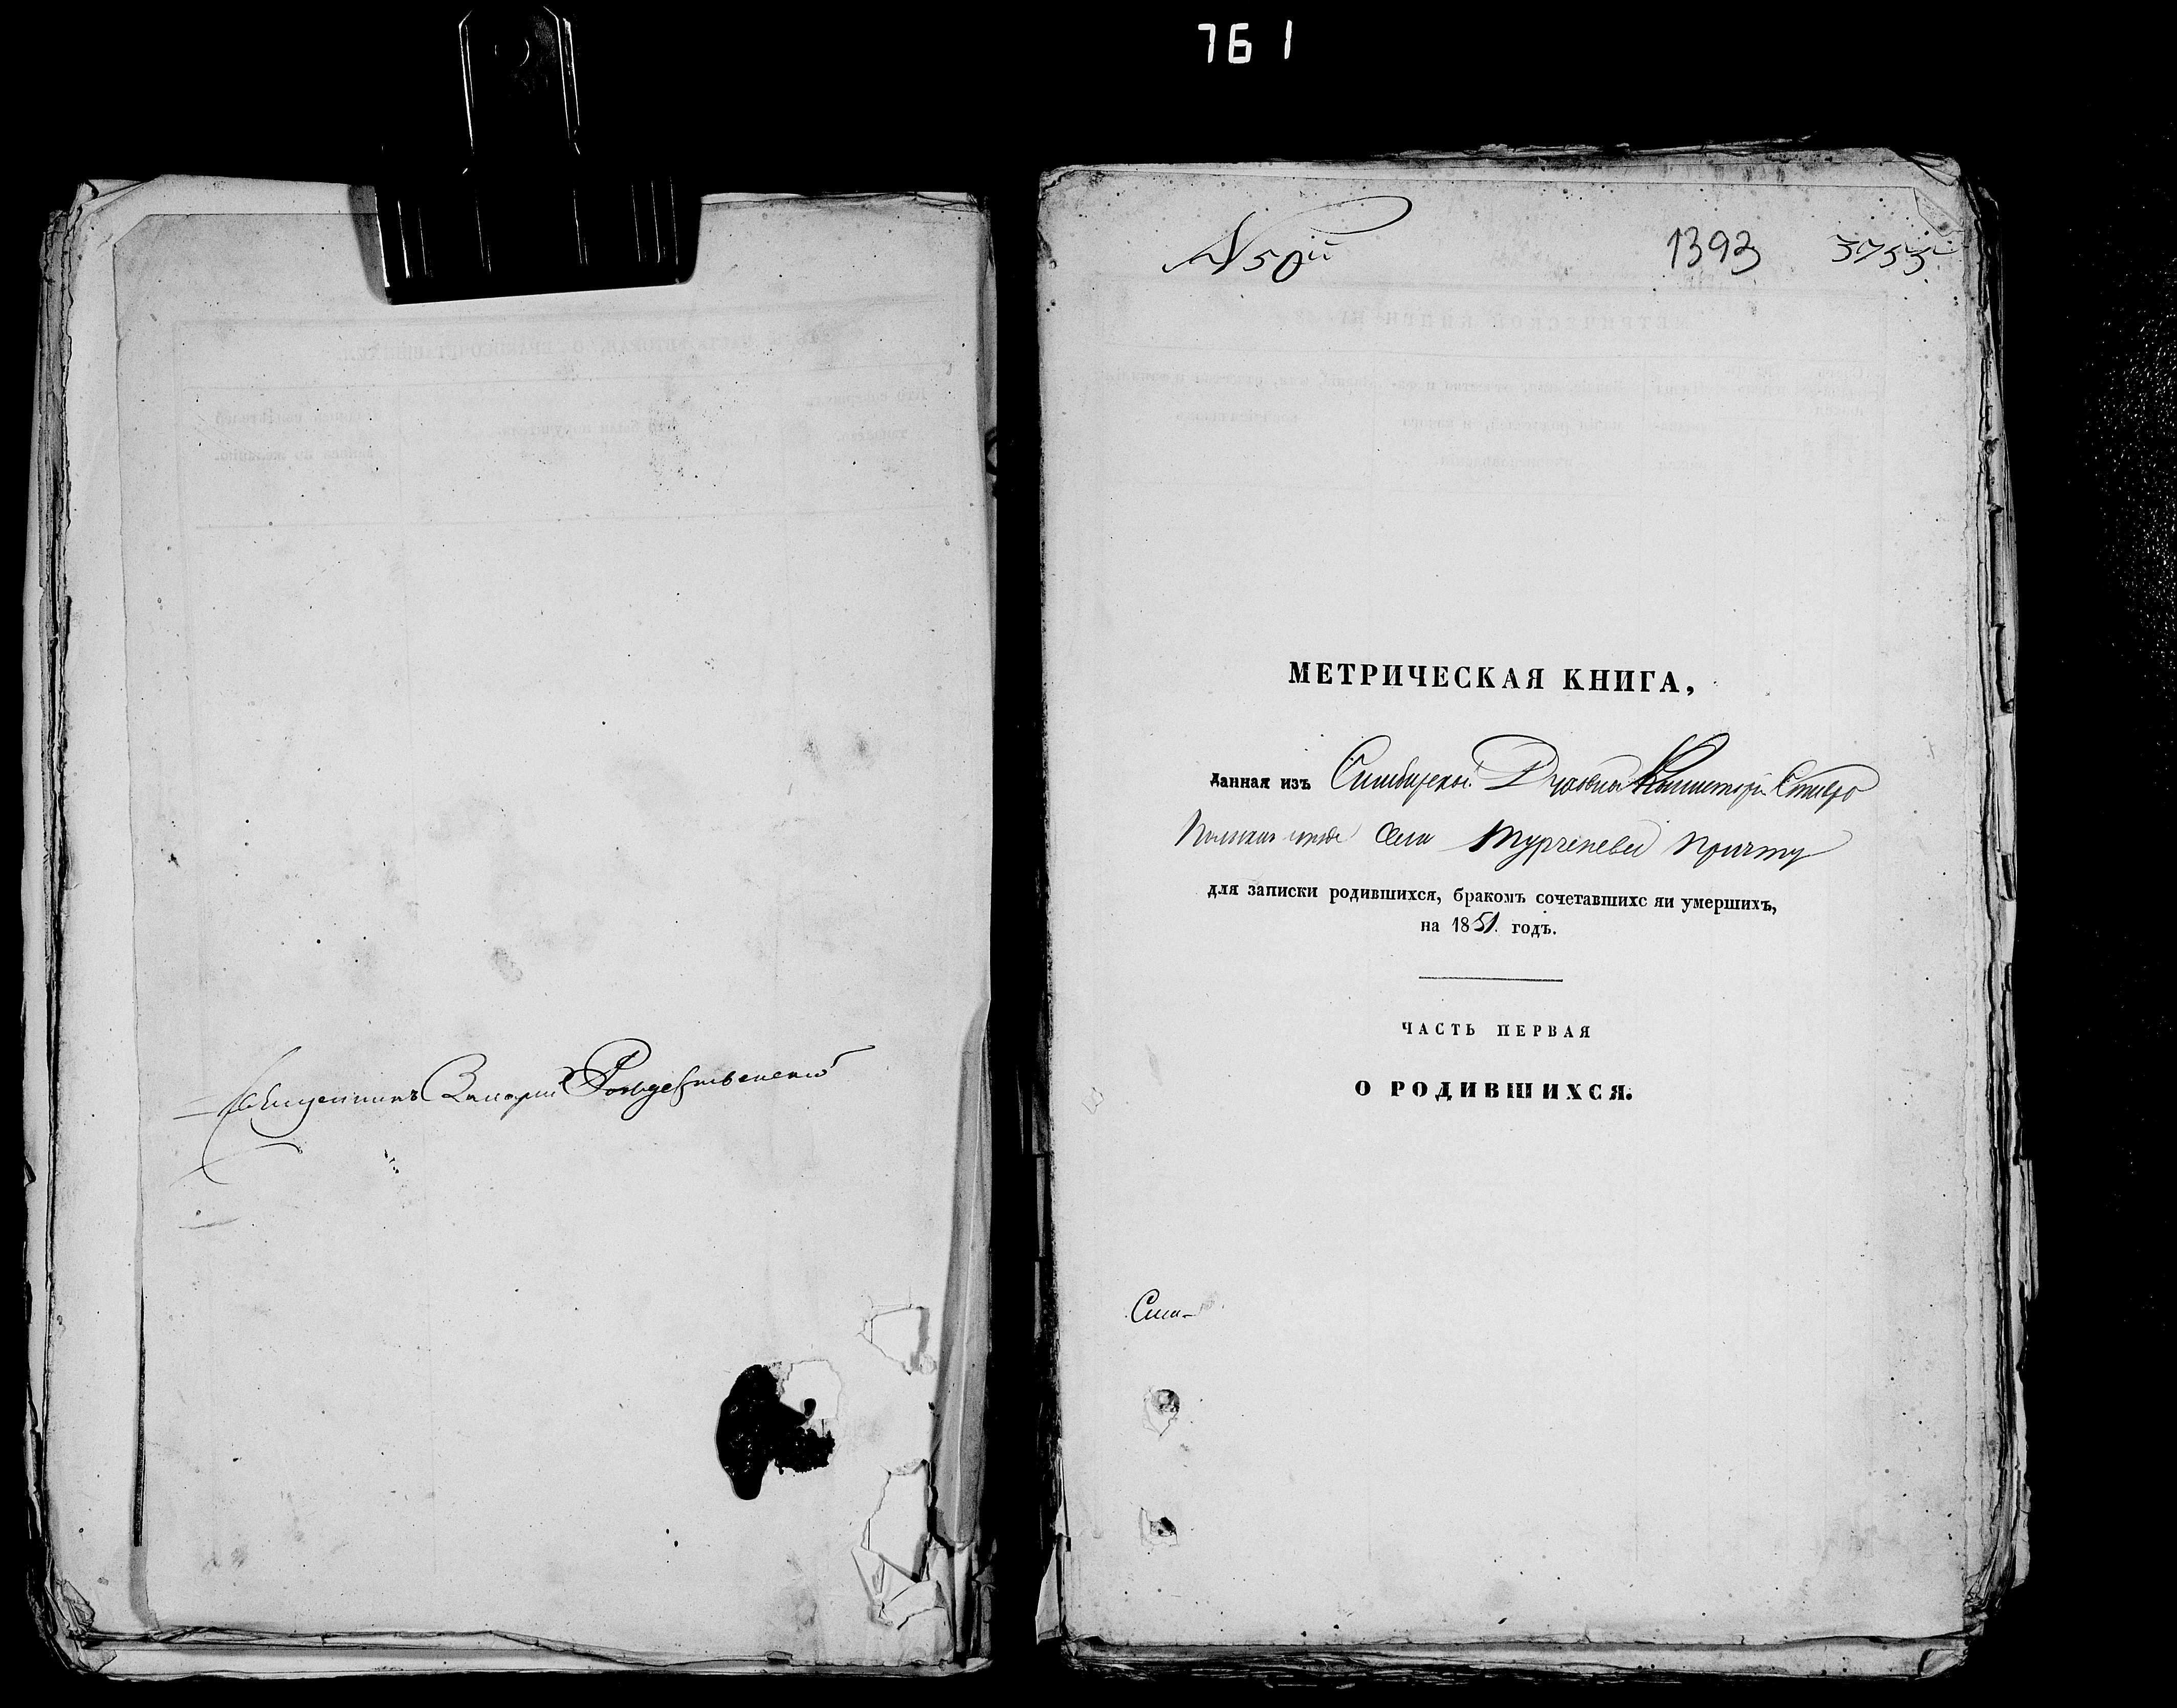 761
Священникъ Валерий Рождественский
N 50й 1393 3753
МЕТРИЧЕСКАЯ КНИГА,
данная изъ Симбирской Духовной Консисторіи Ставро
польскаго уезда Села Тургенева причту
для записки родившихся, бракомъ сочетавшихс яи умершихъ,
на 1851. годъ.
ЧАСТЬ ПЕРВАЯ
О РОДИВШИХСЯ.